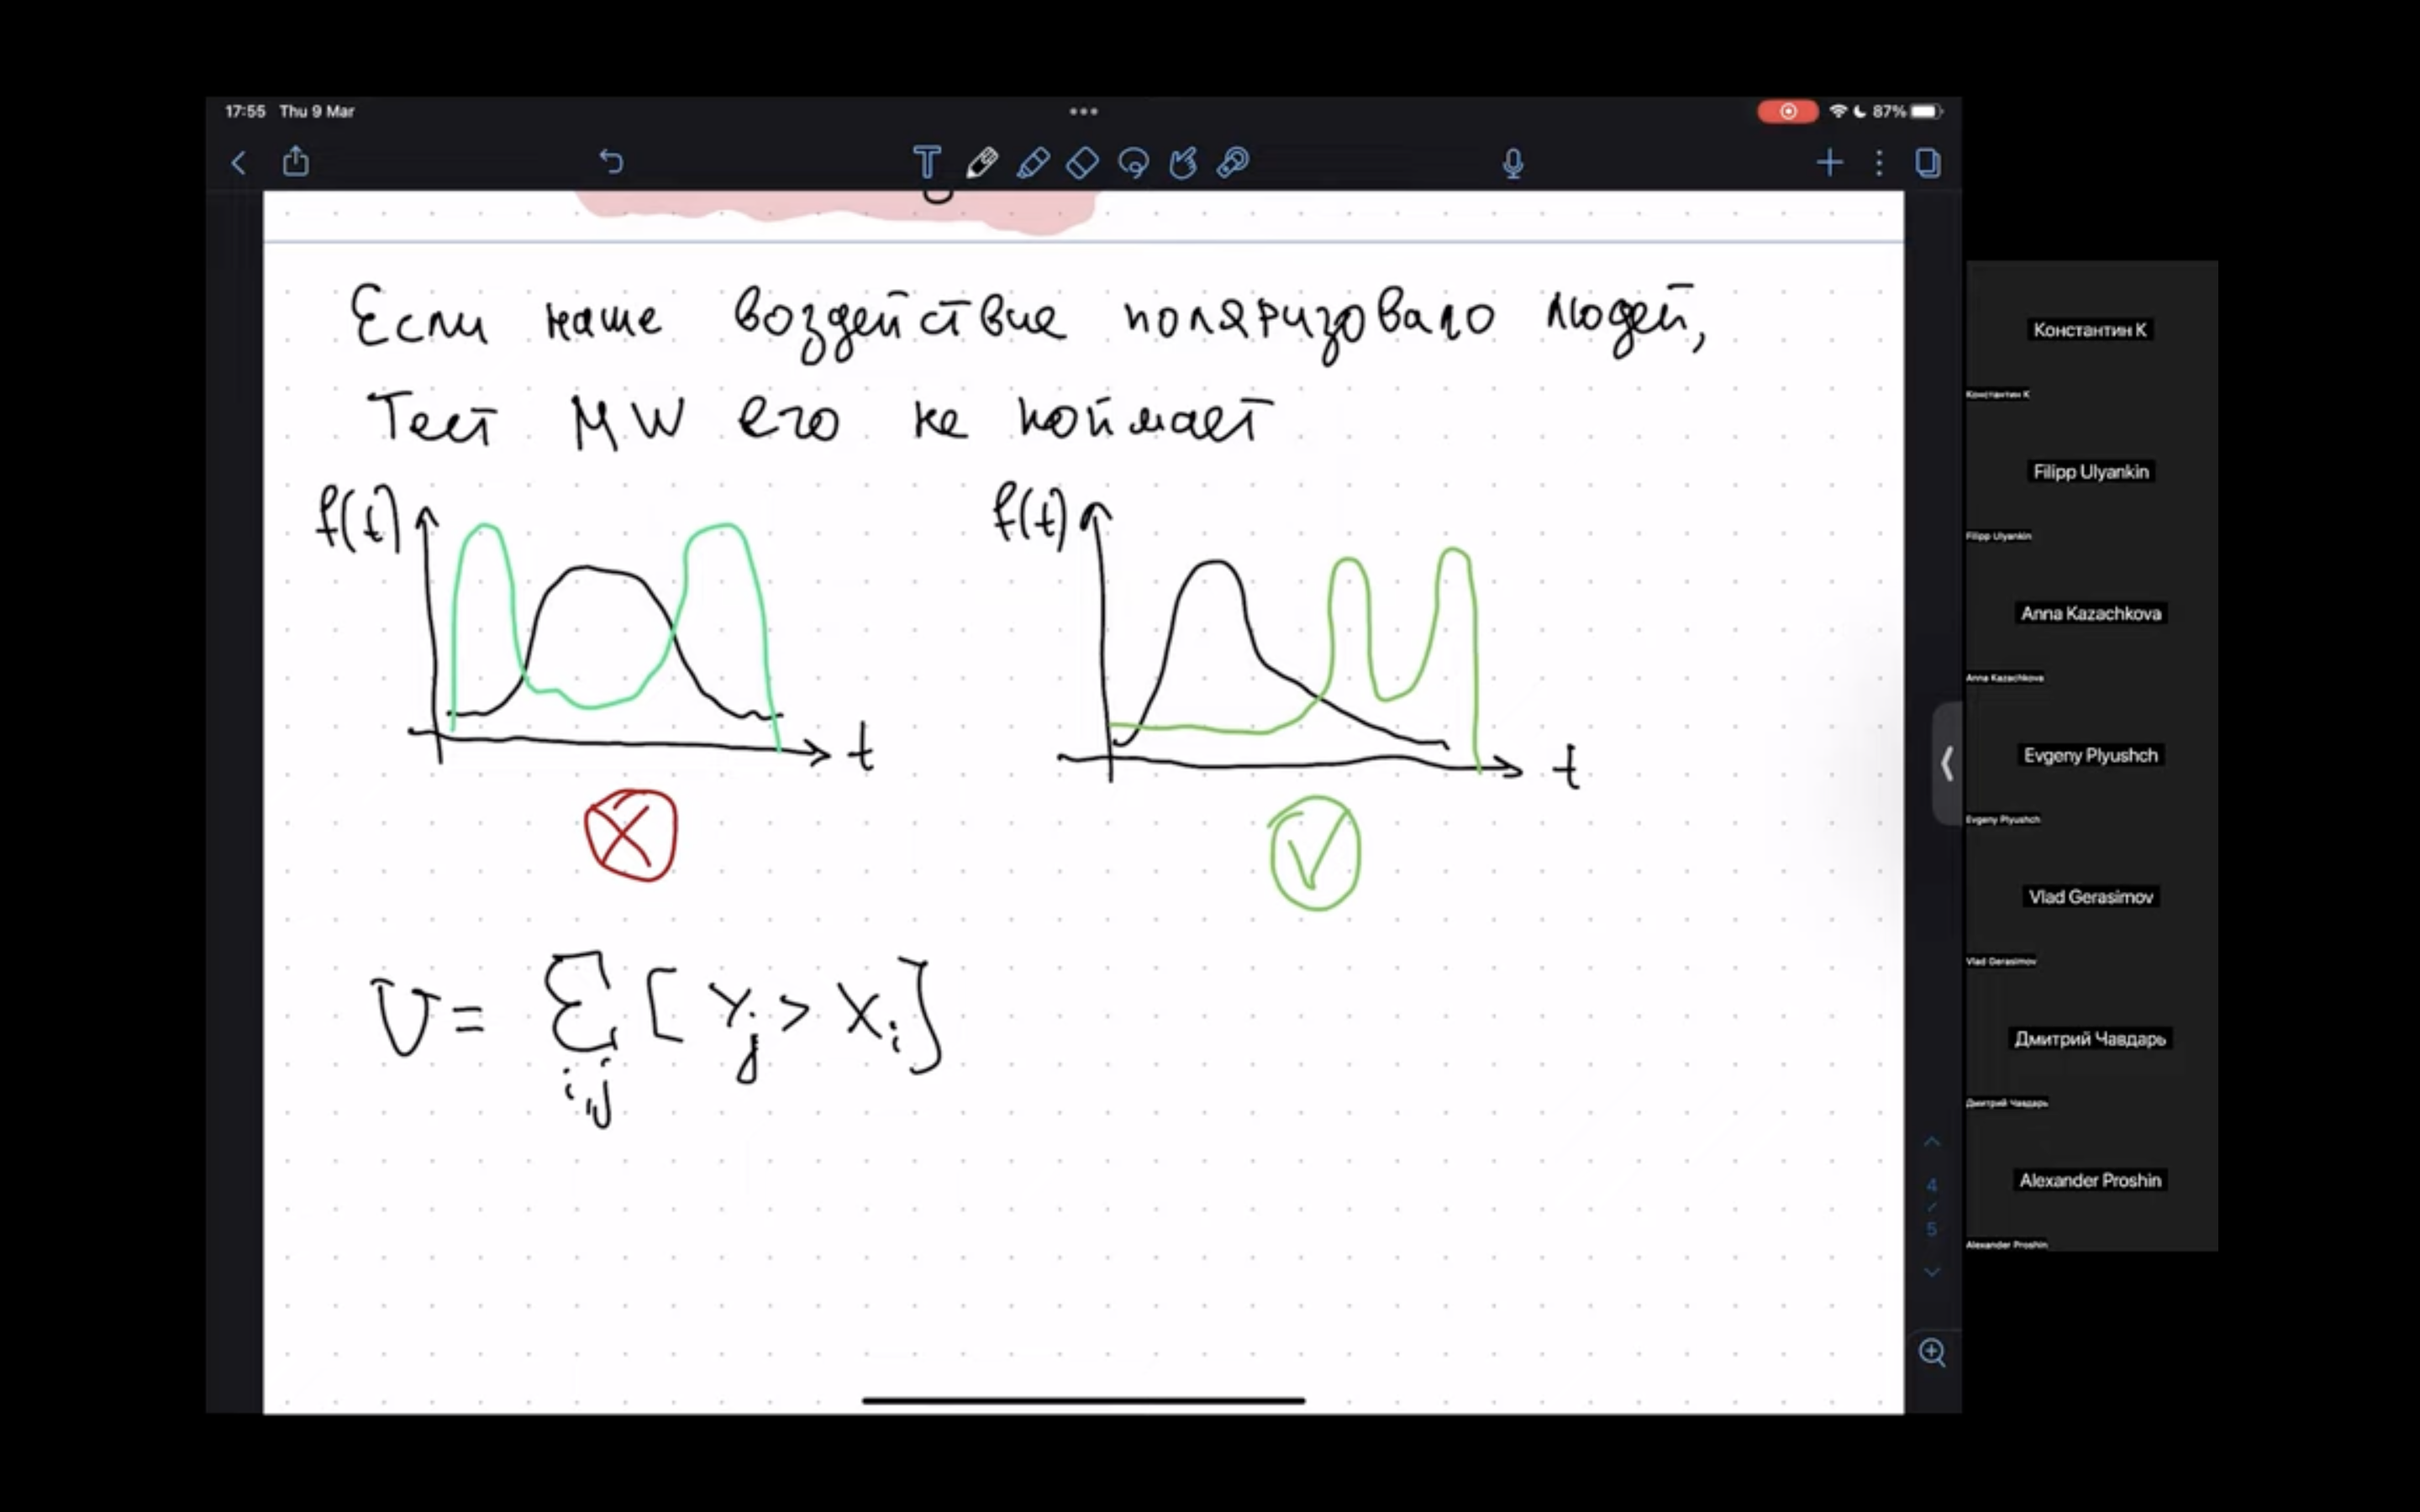 17:55 Thu 9 Mar
87%
T
Если наше воздействие поляризовало людей,
Тест MW его не поймает
f(t)
t
f(t)
t
U = Σ [Yj > Xi]
i,j
Константин К
Константин К
Filipp Ulyankin
Filipp Ulyankin
Anna Kazachkova
Anna Kazachkova
Evgeny Plyushch
Evgeny Plyushch
Vlad Gerasimov
Vlad Gerasimov
Дмитрий Чавдарь
Дмитрий Чавдарь
Alexander Proshin
Alexander Proshin
4
/
5